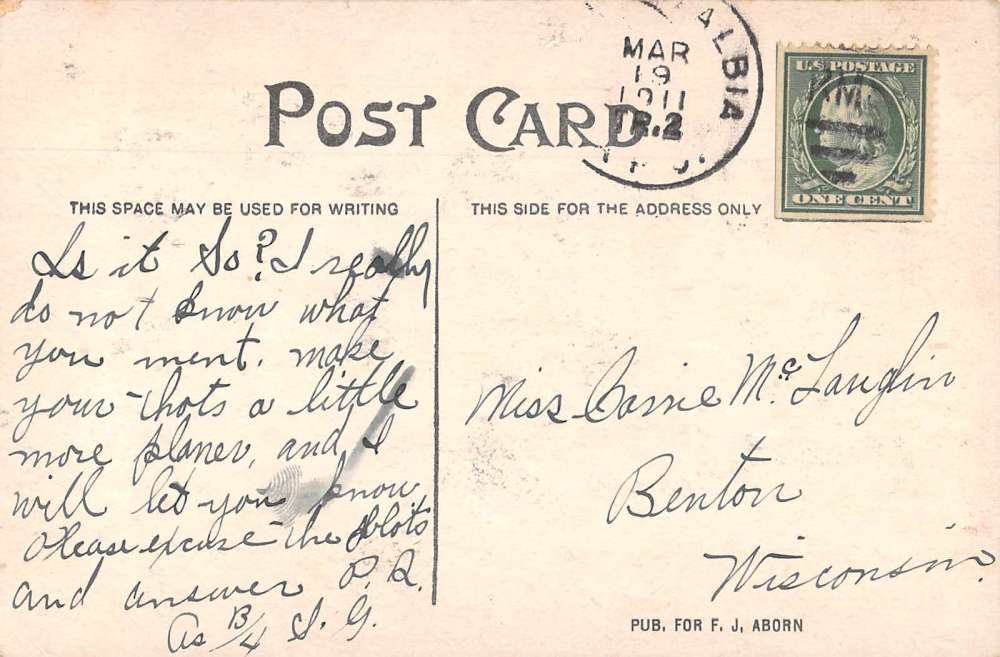 POST CARD
ALBIA
MAR
19
1911
TR.2
U.S. POSTAGE
ONE CENT
THIS SPACE MAY BE USED FOR WRITING
THIS SIDE FOR THE ADDRESS ONLY
Is it So? I really
do not know what
you ment. make
your thots a little
more planer, and I
will let you know
Please excuse the blots
and answer P.R.
As B/4 S. G.
Miss Carrie McLauglin
Benton
Wisconsin.
PUB. FOR F. J. ABORN